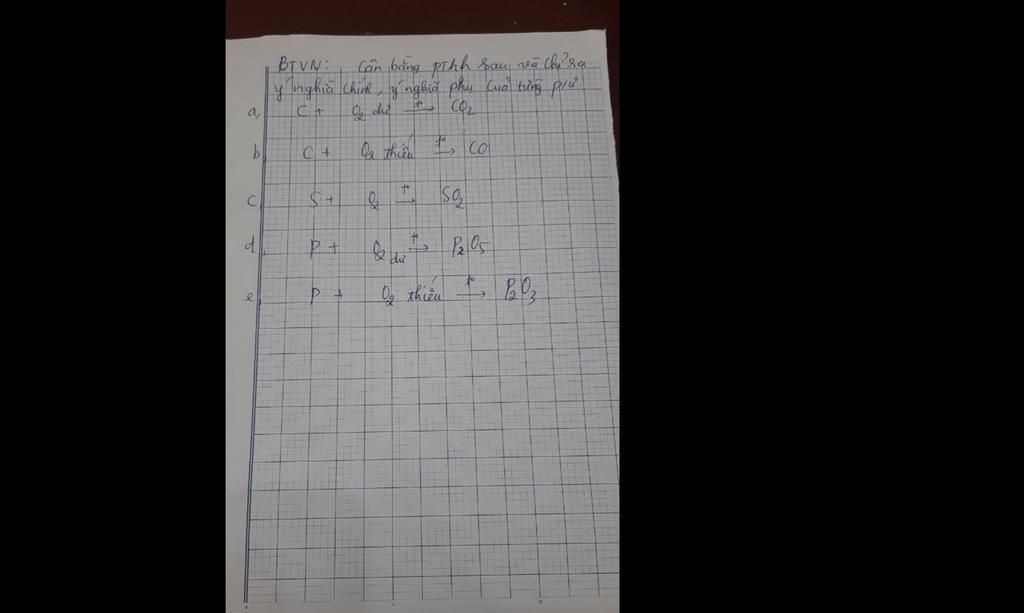 BTVN: Cân bằng pthh sau và chỉ ra
ý nghĩa chính, ý nghĩa phụ của từng pư
a, C + O₂ dư t° → CO₂
b, C + O₂ thiếu t° → CO
c, S + O₂ t° → SO₂
d, P + O₂ dư t° → P₂O₅
e, P + O₂ thiếu t° → P₂O₃